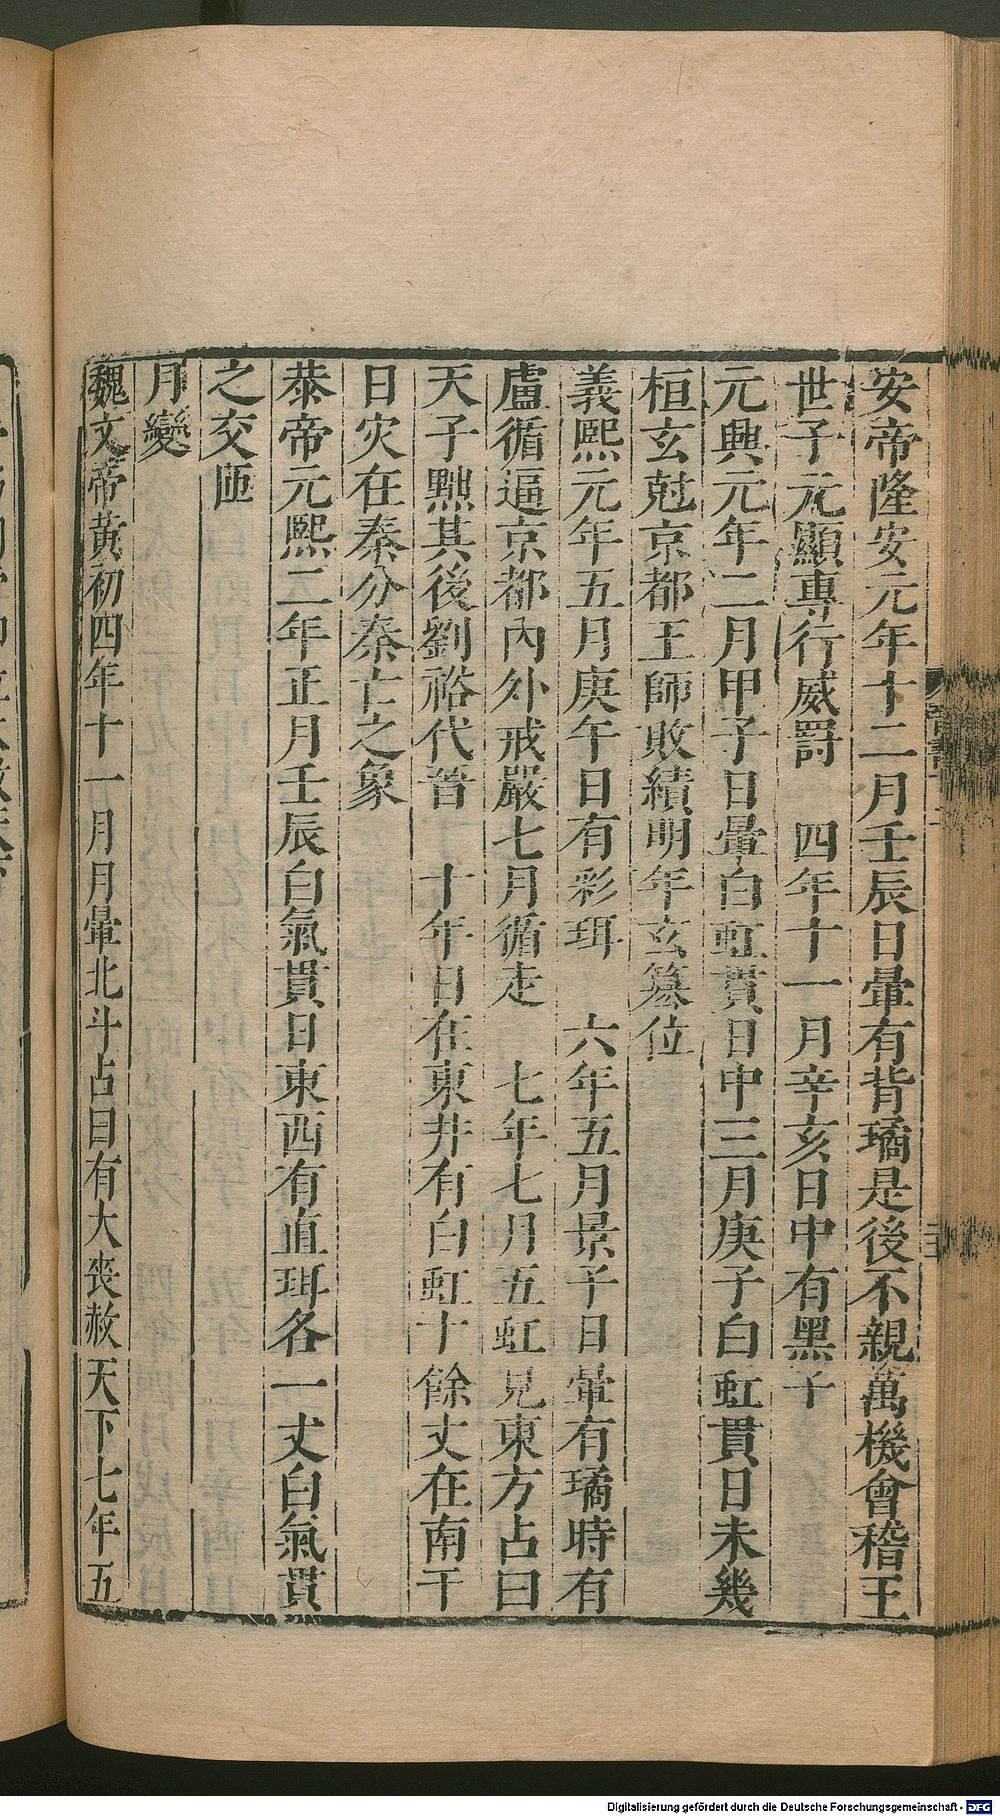 安帝隆安元年十二月壬辰日暈有背璚是後不親萬機會稽王
世子元顯專行威罸　四年十一月辛亥日中有黑子
元興元年二月甲子日暈白虹貫日中三月庚子白虹貫日未幾
桓玄尅京都王師敗績明年玄簒位
義熙元年五月庚午日有彩珥　六年五月景子日暈有璚時有
盧循逼京都內外戒嚴七月循走　七年七月五虹見東方占曰
天子黜其後劉裕代晉　十年日在東井有白虹十餘丈在南干
日灾在秦分秦亡之象
恭帝元熙二年正月壬辰白氣貫日東西有直珥各一丈白氣貫
之交匝
月變
魏文帝黃初四年十一月月暈北斗占曰有大喪赦天下七年五
Digitalisierung gefördert durch die Deutsche Forschungsgemeinschaft - DFG